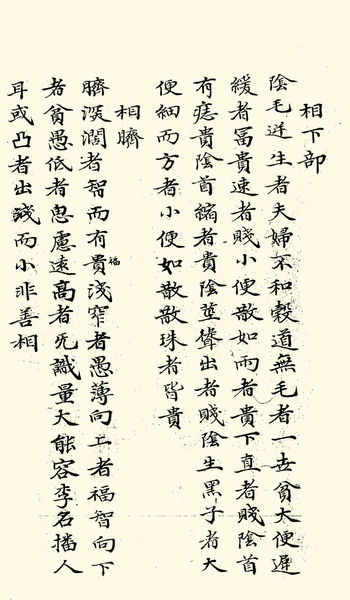 相下部
陰毛逆生者夫婦不和穀道無毛者一世貧大便遲
緩者冨貴速者賤小便散如雨者貴下直者賤陰首
有痣貴陰首縮者貴陰莖聳出者賤陰生黑子者大
便細而方者小便如散散珠者皆貴
相臍
臍深濶者智而有貴福淺窄者愚薄向上者福智向下
者貧愚低者思慮遠高者无識量大能容李名播人
耳或凸者出淺而小非善相